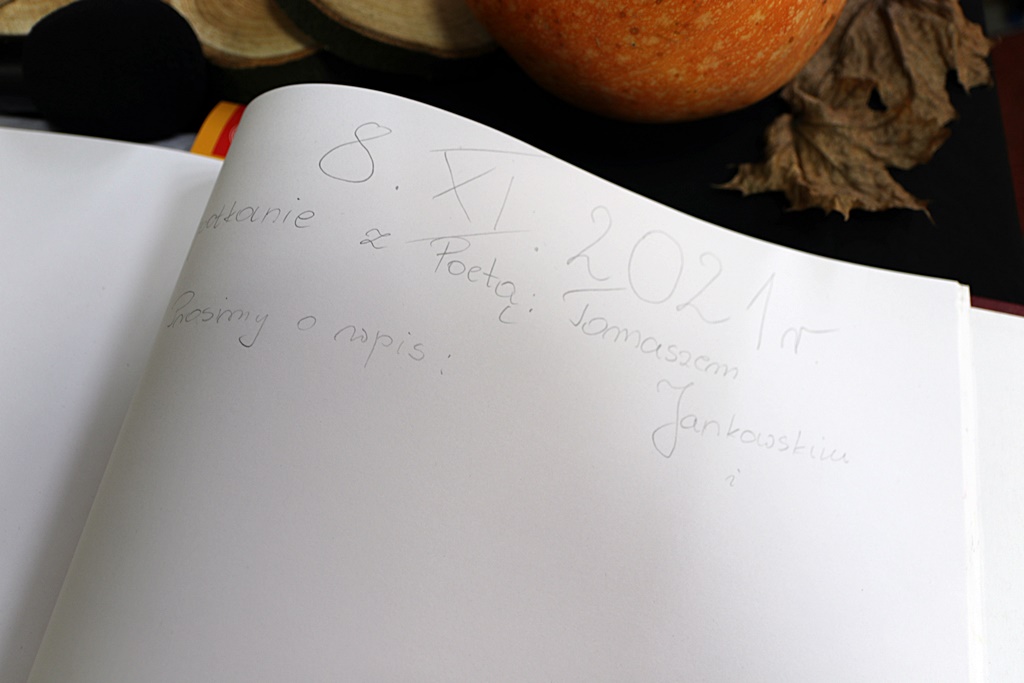 8. XI. 2021 r.
otkanie z Poetą: Tomaszem
Jankowskim
i
Prosimy o wpis: